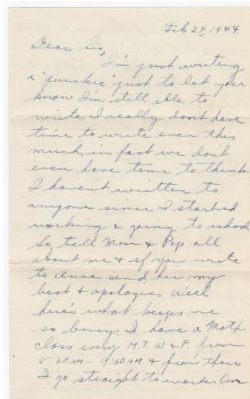 Feb 24, 1944
Dear Sis,
I'm just writing
a "quickie" just to let you
know I'm still able to
write. I really don't have
time to write even this
much, in fact we don't
even have time to think
I haven't written to
anyone since I started
working & going to school
So, tell Mom & Pop all
about me & if you write
to Anne send her my
best & apologies Well
here's what keeps me
so busy. I have a Math
class every M.T.W & F. from
8:30AM - 9:30AM & from there
I go straight to work